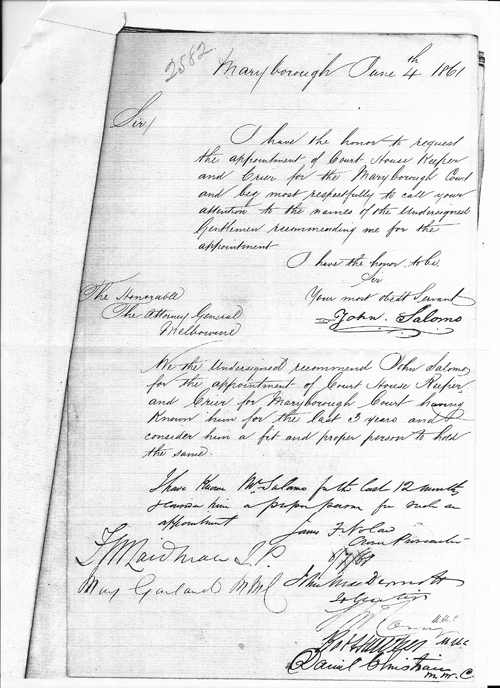 2582
Maryborough June 4th 1861
Sir/
I have the honor to request
the appointment of Court House Keeper
and Crier for the Maryborough Court
and beg most respectfully to call your
attention to the names of the Undersigned
Gentlemen recommending me for the
appointment
I have the honor to be
Sir
Your most obedt Servant
John Salomo
The Honorable
The Attorney General
Melbourne
We the Undersigned recommend John Salomo
for the appointment of Court House Keeper
and Crier for Maryborough Court having
Known him for the last 3 years and
consider him a fit and proper person to hold
the same.
I have Known Mr Salomo for the last 12 months
him a proper person for such an
appointment
James F Nolan
Crown
J.P.
Garland MMC
John MacDermott
MMC
MMC
Daniel Christian
M.M.C.